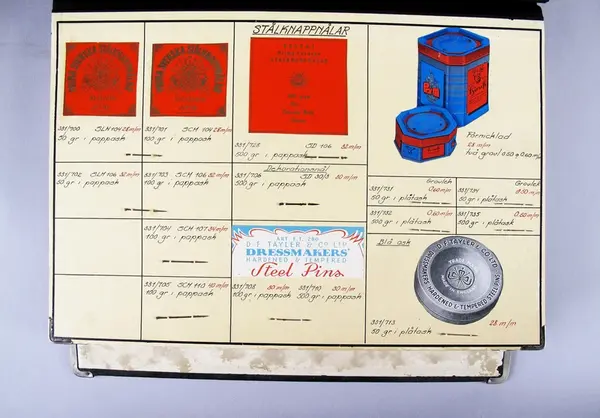 STÅLKNAPPNÅLAR
331/700 SLM 104 28 m/m
50 gr i pappask
331/701 SCM 104 28 m/m
100 gr i pappask
331/728 SD 106 32 m/m
500 gr i pappask
Förnicklad
28 m/m
två grovl 0.50 o 0.60 m/m
331/702 SLM 106 32 m/m
50 gr i pappask
331/703 SCM 106 32 m/m
100 gr i pappask
Dekorationsnål
331/706 SD 30/3 30 m/m
500 gr i pappask
Grovlek
331/731 0.60 m/m
50 gr i plåtask
Grovlek
331/734 0.50 m/m
100 gr i plåtask
331/732 0.60 m/m
50 gr i plåtask
331/735 0.60 m/m
100 gr i plåtask
331/704 SCM 107 34 m/m
100 gr i pappask
D.F. TAYLER & CO LTD
DRESSMAKERS'
HARDENED & TEMPERED
Steel Pins.
Blå ask
D.F. TAYLER & CO LTD
DRESSMAKERS
HARDENED & TEMPERED STEEL PINS
331/705 SCM 110 40 m/m
100 gr i pappask
331/708 30 m/m
100 gr i pappask
331/710 30 m/m
500 gr i pappask
331/713 28 m/m
50 gr i plåtask